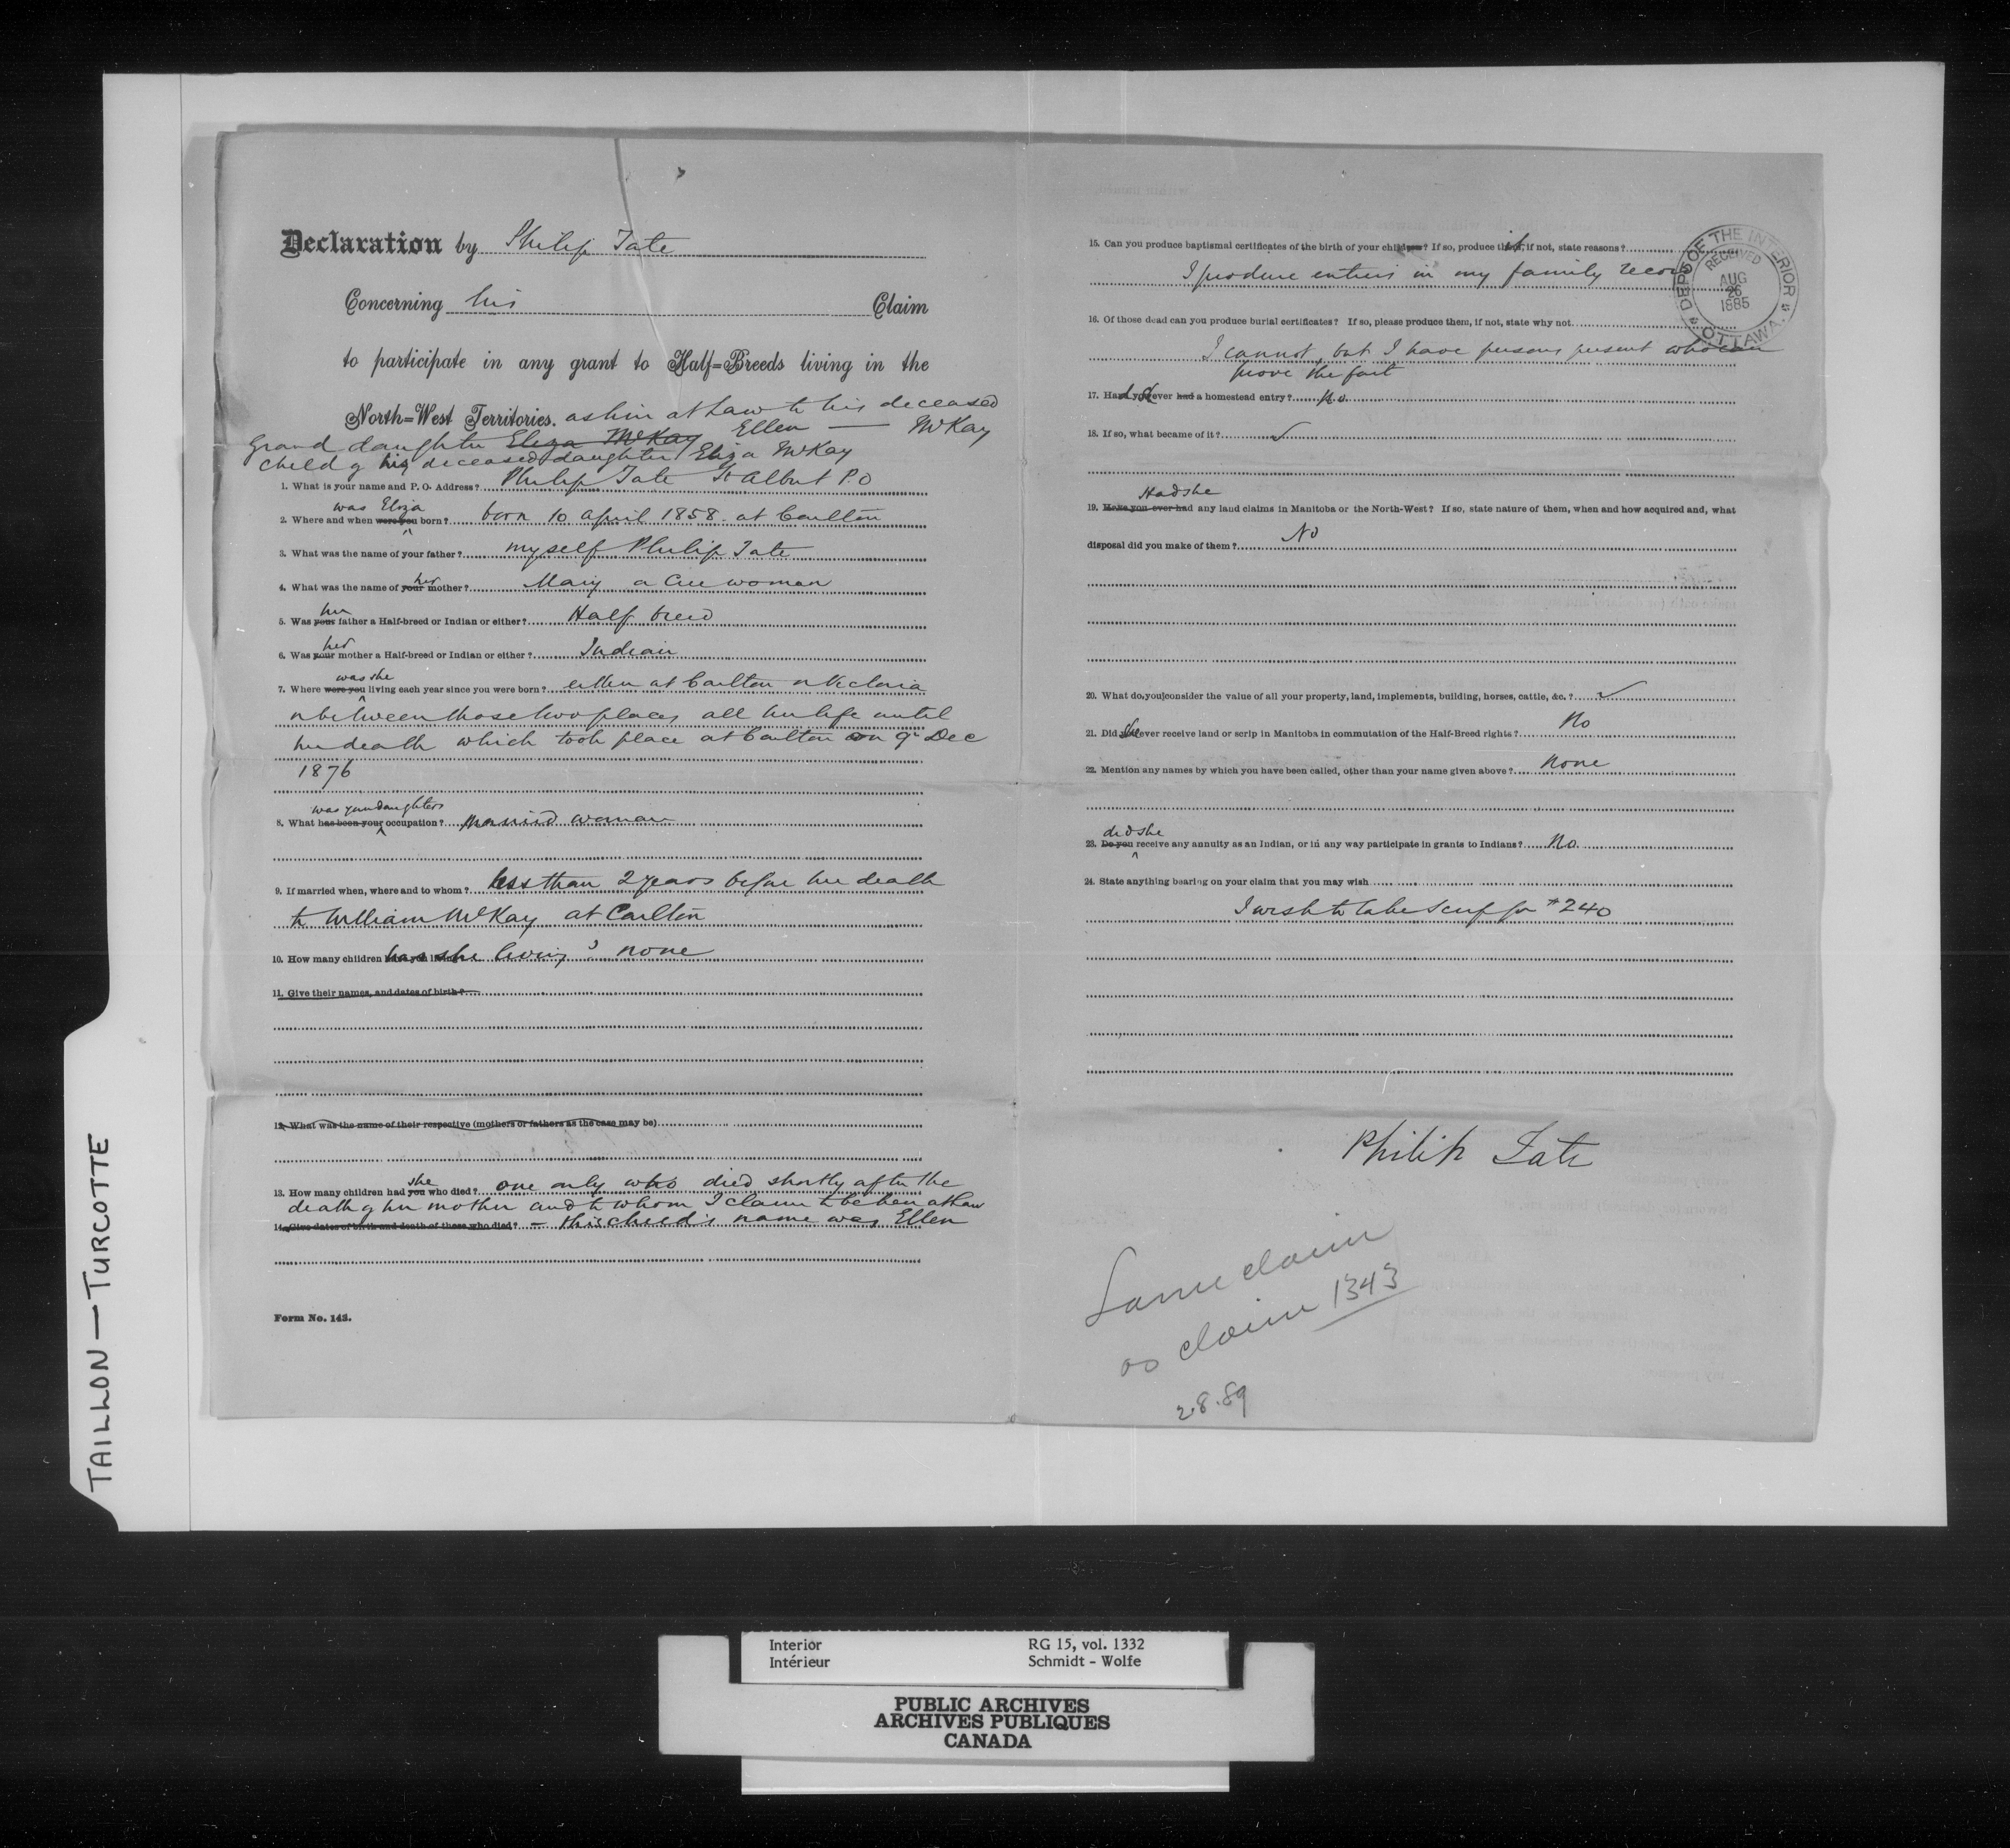 Declaration by Philip Tate
Concerning his Claim
to participate in any grant to Half=Breeds living in the
North=West Territories. as heir at Law to his deceased
Grand daughter Eliza McKay Ellen — McKay
child of his deceased daughter Eliza McKay
1. What is your name and P. O. Address? Philip Tate St Albert P.O
was Eliza
2. Where and when were you born? born 10 april 1858. at Carlton
3. What was the name of your father? myself Philip Tate
her
4. What was the name of your mother? Mary a Cree woman
her
5. Was your father a Half-breed or Indian or either? Half breed
her
6. Was your mother a Half-breed or Indian or either? Indian
was she
7. Where were you living each year since you were born? either at Carlton or Victoria
or between those two places all her life until
her death which took place at Carlton on 9th Dec
1876
was your daughters
8. What has been your occupation? Married woman
9. If married when, where and to whom? less than 2 years before her death
to William McKay at Carlton
10. How many children has she living? none
11. Give their names, and dates of birth?
12. What was the name of their respective (mothers or fathers as the case may be)
she
13. How many children had you who died? one only who died shortly after the
death of her mother and to whom I claim to be heir at Law
14. Give dates of birth and death of those who died? – this child's name was Ellen
Form No. 143.
15. Can you produce baptismal certificates of the birth of your children? If so, produce it, if not, state reasons?
I produce entries in my family record
16. Of those dead can you produce burial certificates? If so, please produce them, if not, state why not.
I cannot, but I have persons present who can
prove the fact
17. Had she ever had a homestead entry? No
18. If so, what became of it? ✓
Had she
19. Have you ever had any land claims in Manitoba or the North-West? If so, state nature of them, when and how acquired and, what
disposal did you make of them? No
20. What do you consider the value of all your property, land, implements, building, horses, cattle, &c.? ✓
21. Did she ever receive land or scrip in Manitoba in commutation of the Half-Breed rights? No
22. Mention any names by which you have been called, other than your name given above? None
did she
23. Do you receive any annuity as an Indian, or in any way participate in grants to Indians? No.
24. State anything bearing on your claim that you may wish
I wish to take scrip for $240
Philip Tate
Same claim
as claim 1343
2.8.89
DEPT OF THE INTERIOR
RECEIVED
AUG
26
1885
OTTAWA.
TAILLON — TURCOTTE
Interior RG 15, vol. 1332
Intérieur Schmidt - Wolfe
PUBLIC ARCHIVES
ARCHIVES PUBLIQUES
CANADA